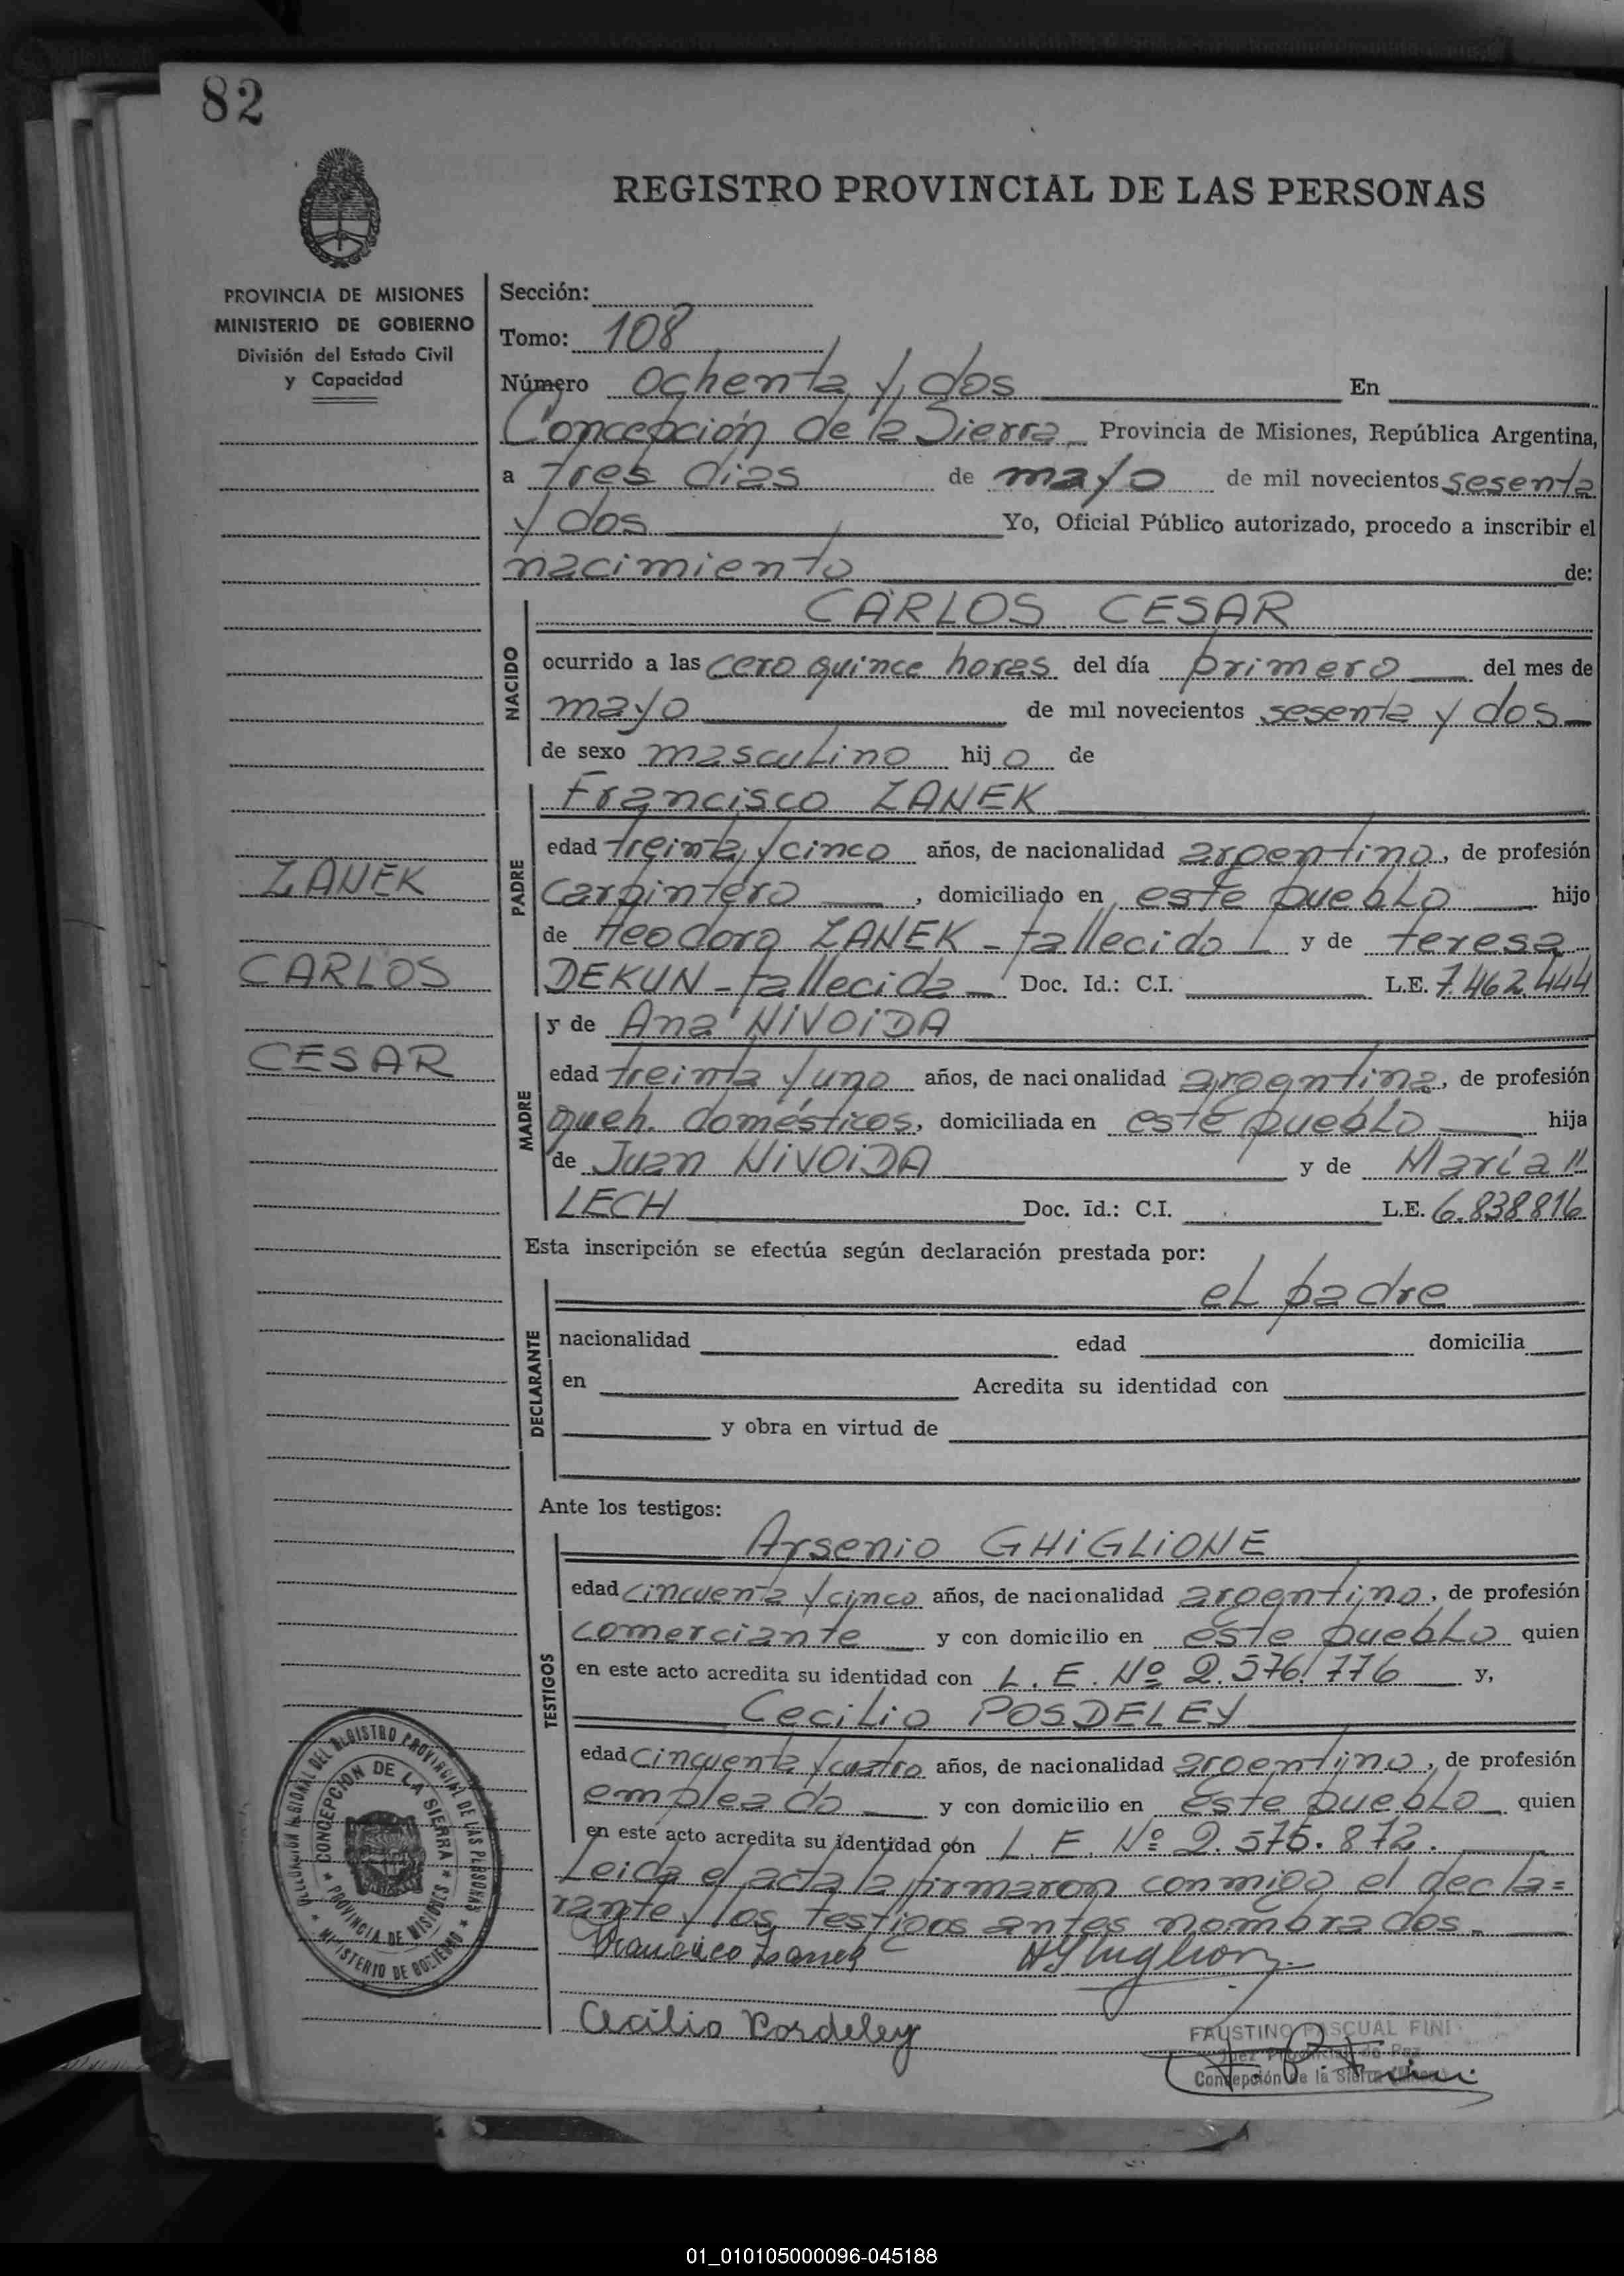 82
REGISTRO PROVINCIAL DE LAS PERSONAS
PROVINCIA DE MISIONES
MINISTERIO DE GOBIERNO
División del Estado Civil
y Capacidad
Sección:
Tomo: 108
Número ochenta y dos En
Concepción de la Sierra Provincia de Misiones, República Argentina,
a tres dias de mayo de mil novecientos sesenta
y dos Yo, Oficial Público autorizado, procedo a inscribir el
nacimiento de:
NACIDO
CARLOS CESAR
ocurrido a las cero quince horas del día primero del mes de
mayo de mil novecientos sesenta y dos
de sexo masculino hijo de
PADRE
Francisco ZANEK
edad treinta y cinco años, de nacionalidad argentino, de profesión
carpintero, domiciliado en este pueblo hijo
de Heodoro ZANEK - fallecido - y de teresa
DEKUN - fallecida - Doc. Id.: C.I. L.E. 7.462.444
MADRE
y de Ana NIVOIDA
edad treinta y uno años, de nacionalidad argentina, de profesión
queh. domésticos, domiciliada en este pueblo hija
de Juan NIVOIDA y de María
LECH Doc. Id.: C.I. L.E. 6.838.816
ZANEK
CARLOS
CESAR
Esta inscripción se efectúa según declaración prestada por:
DECLARANTE
el padre
nacionalidad edad domicilia
en Acredita su identidad con
y obra en virtud de
Ante los testigos:
TESTIGOS
Arsenio GHIGLIONE
edad cincuenta y cinco años, de nacionalidad argentino, de profesión
comerciante y con domicilio en este pueblo quien
en este acto acredita su identidad con L. E. Nº 2.576.776 y,
Cecilio POSDELEY
edad cincuenta y cuatro años, de nacionalidad argentino, de profesión
empleado y con domicilio en este pueblo quien
en este acto acredita su identidad con L. E. Nº 2.575.872.
Leida el acta la firmaron conmigo el decla=
rante y los testigos antes nombrados.-
Francisco Zanek
Cecilio Posdeley
DELEGACION REGIONAL DEL REGISTRO PROVINCIAL DE LAS PERSONAS
MINISTERIO DE GOBIERNO
CONCEPCION DE LA SIERRA
PROVINCIA DE MISIONES
FAUSTINO PASCUAL FINI
Juez Provincial de Paz
Concepción de la Sierra
01_010105000096-045188